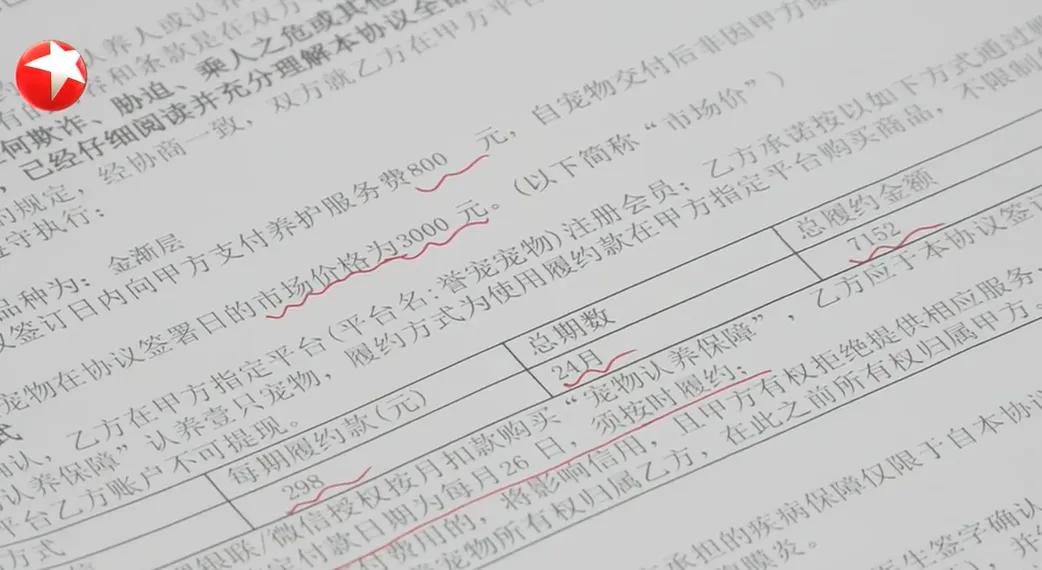 认养人或认养
容和条款是在双方
何欺诈、胁迫、乘人之危或其他
,已经仔细阅读并充分理解本协议全部
的规定,经协商一致,双方就乙方在甲方平台
遵守执行:
品种为:金渐层
议签订日内向甲方支付养护服务费800 元,自宠物交付后非因甲方原
宠物在协议签署日的市场价格为3000 元。(以下简称“市场价”)
式
确认,乙方在甲方指定平台(平台名:誉宠宠物)注册会员;乙方承诺按以如下方式通过
认养保障”认养壹只宠物,履约方式为使用履约款在甲方指定平台购买商品,不限制
平台乙方账户不可提现。
方式 每期履约款(元) 总期数 总履约金额
298 24月 7152
银联/微信授权按月扣款购买“宠物认养保障”,乙方应于本协议签订
定付款日期为每月26 日,须按时履约;
付费用的,将影响信用,且甲方有权拒绝提供相应服务;
宠物所有权归属乙方,在此之前所有权归属甲方。
承担的疾病保障仅限于自本协议
腹膜炎。
医生签字确认